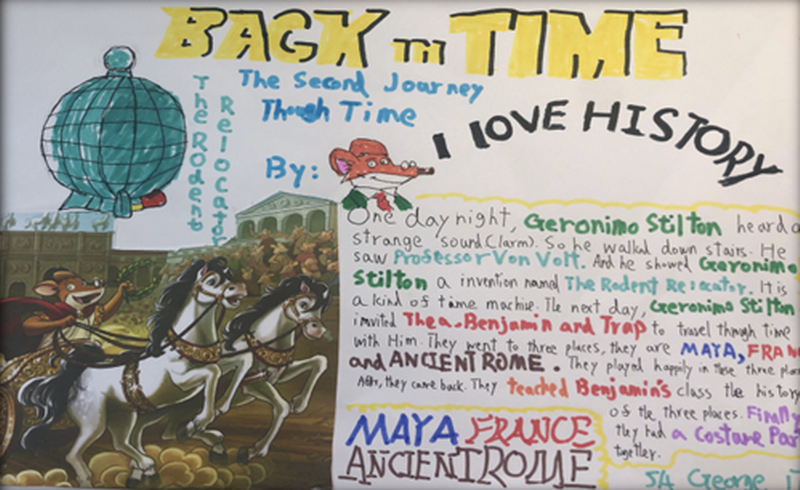 BACK in TIME
The Second Journey
Though Time
The Rodent
Relocator
By:
I LOVE HISTORY
One day night, Geronimo Stilton heard a
strange sound (larm). So he walked down stairs. He
saw Professor Von Volt. And he showed Geronimo
Stilton a invention named The Rodent Relocator. It is
a kind of time machise. The next day, Geronimo Stilton
invited Thea. Benjamin and Trap to travel though time
with Him. They went to three places, they are MAYA, FRAN
and ANCIENT ROME. They played happily in these three plac
After, they came back. They teached Benjamin's class the history
of the three places. Finally
they had a Costume Par
together.
MAYA FRANCE
ANCIENT ROME
S4 George